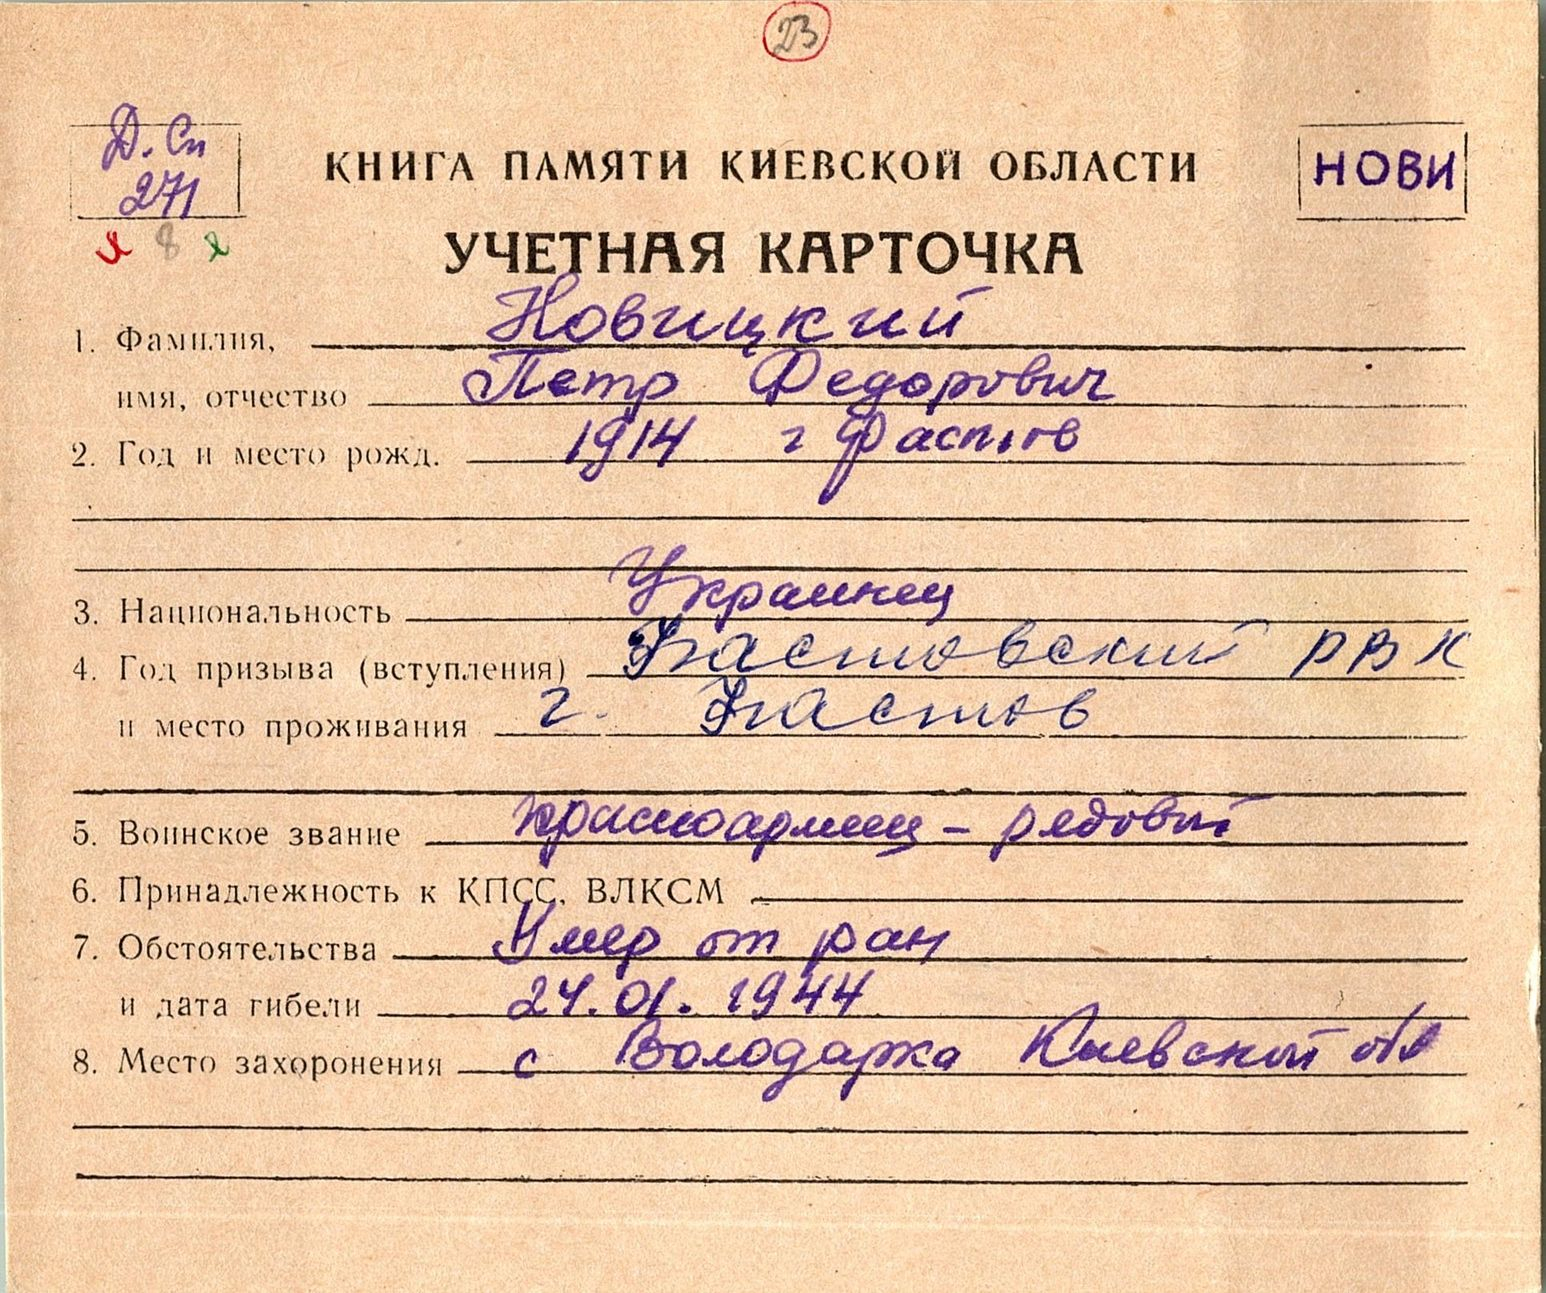 23
Д. Сп
271
КНИГА ПАМЯТИ КИЕВСКОЙ ОБЛАСТИ
НОВИ
8
УЧЕТНАЯ КАРТОЧКА
1. Фамилия, Новицкий
имя, отчество Петр Федорович
2. Год и место рожд. 1914 г Фастов
3. Национальность Украинец
4. Год призыва (вступления) Фастовский РВК
и место проживания г. Фастов
5. Воинское звание красноармеец - рядовой
6. Принадлежность к КПСС, ВЛКСМ
7. Обстоятельства Умер от ран
и дата гибели 24.01.1944
8. Место захоронения с Володарка Киевской обл